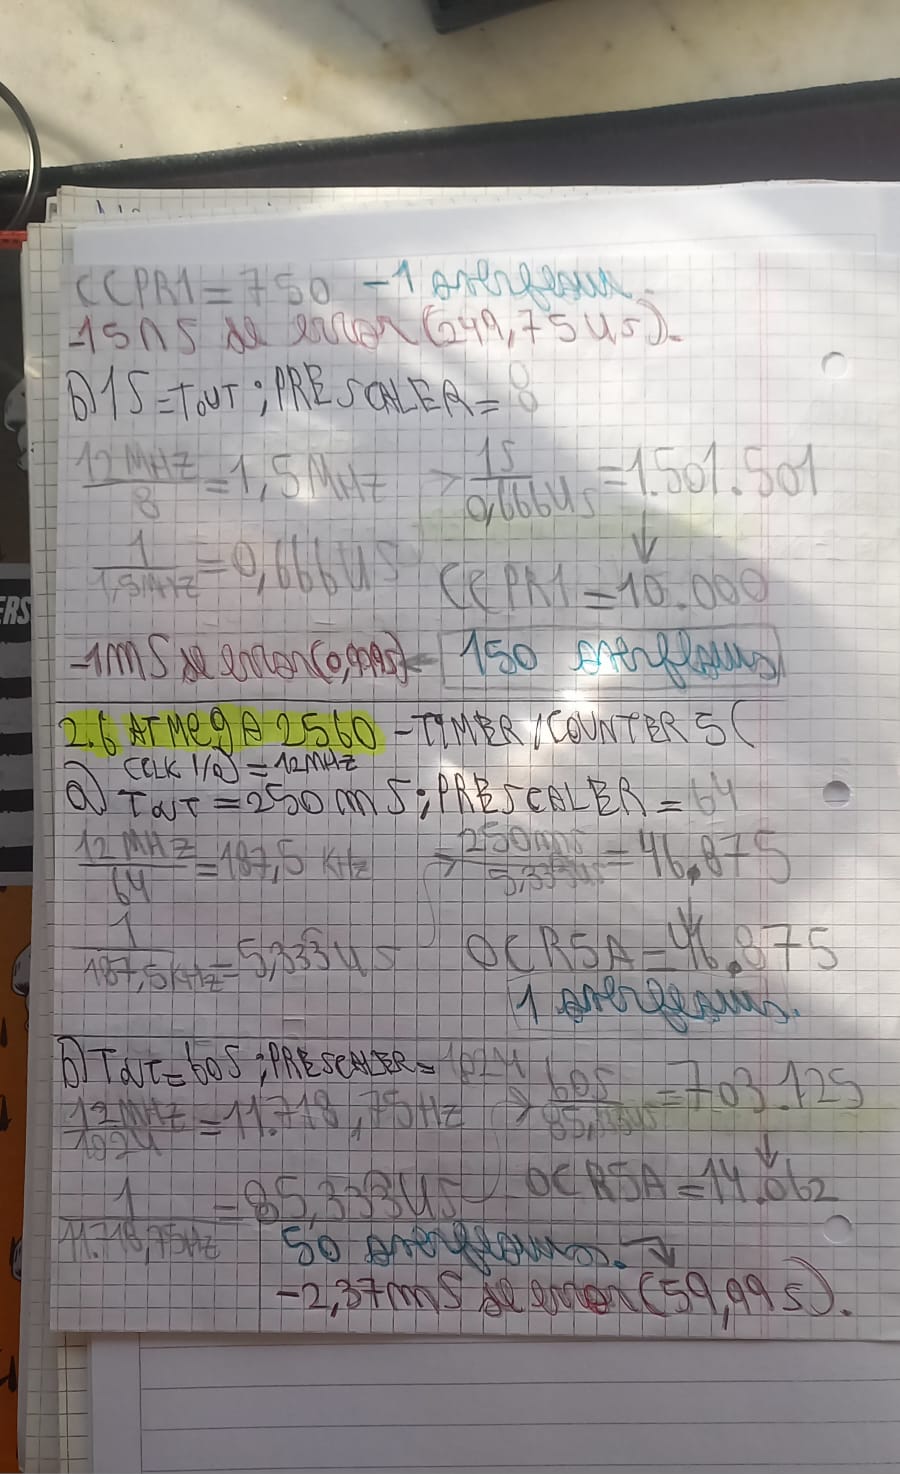 CCPR1=750 -1 overflow.
-15ns de error (249,75us).
b) 1S=TOUT; PRESCALER= 8
12MHz/8 =1,5MHz > 1S/0,666us =1.501.501
↓
1/1,5MHz =0,666us CCPR1=10.000
-1ms de error(0,99s)- 150 overflows
2.6 ATMegA 2560 -TIMER/COUNTER 5(
CCLK I/O)=12MHz
a) TOUT=250ms; PRESCALER=64
12MHz/64 =187,5 KHz → 250ms/5,333us =46.875
↓
1/187,5KHz =5,333us OCR5A=46.875
1 overflows.
b) TOUT=60S; PRESCALER=1024
12MHz/1024 =11.718,75Hz → 60S/85,333us =703.125
↓
1/11.718,75Hz =85,333us OCR5A=14.062
50 overflows.
-2,37ms de error (59,99s).
ERS